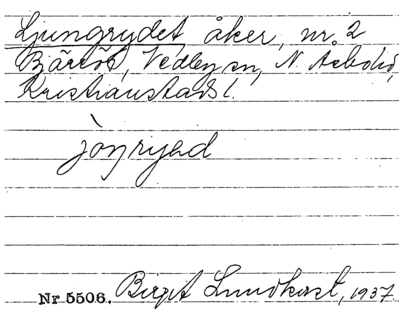 Ljungrydet, åker, nr. 2
Bjäröd, Vedby sn, N. Åsbo hd,
Kristianstads l.
jòŋryəd
Nr 5506. Birgit Lundkvist, 1937